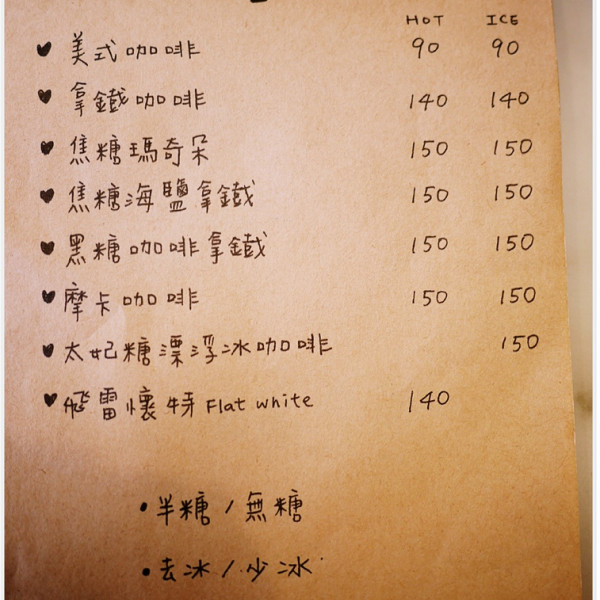 HOT ICE
美式咖啡 90 90
拿鐵咖啡 140 140
焦糖瑪奇朵 150 150
焦糖海鹽拿鐵 150 150
黑糖咖啡拿鐵 150 150
摩卡咖啡 150 150
太妃糖漂浮冰咖啡 150
飛雷懷特 Flat white 140
•半糖/無糖
•去冰/少冰